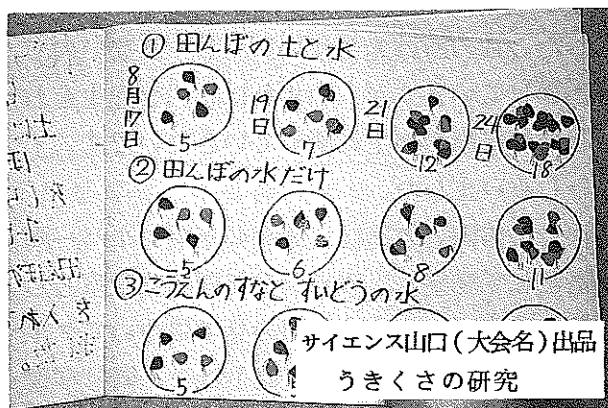 ① 田んぼの土と水
8月17日
5
19日
7
21日
12
24日
18
② 田んぼの水だけ
5
6
8
11
③ こうえんのすなと すいどうの水
5
サイエンス山口(大会名)出品
うきくさの研究